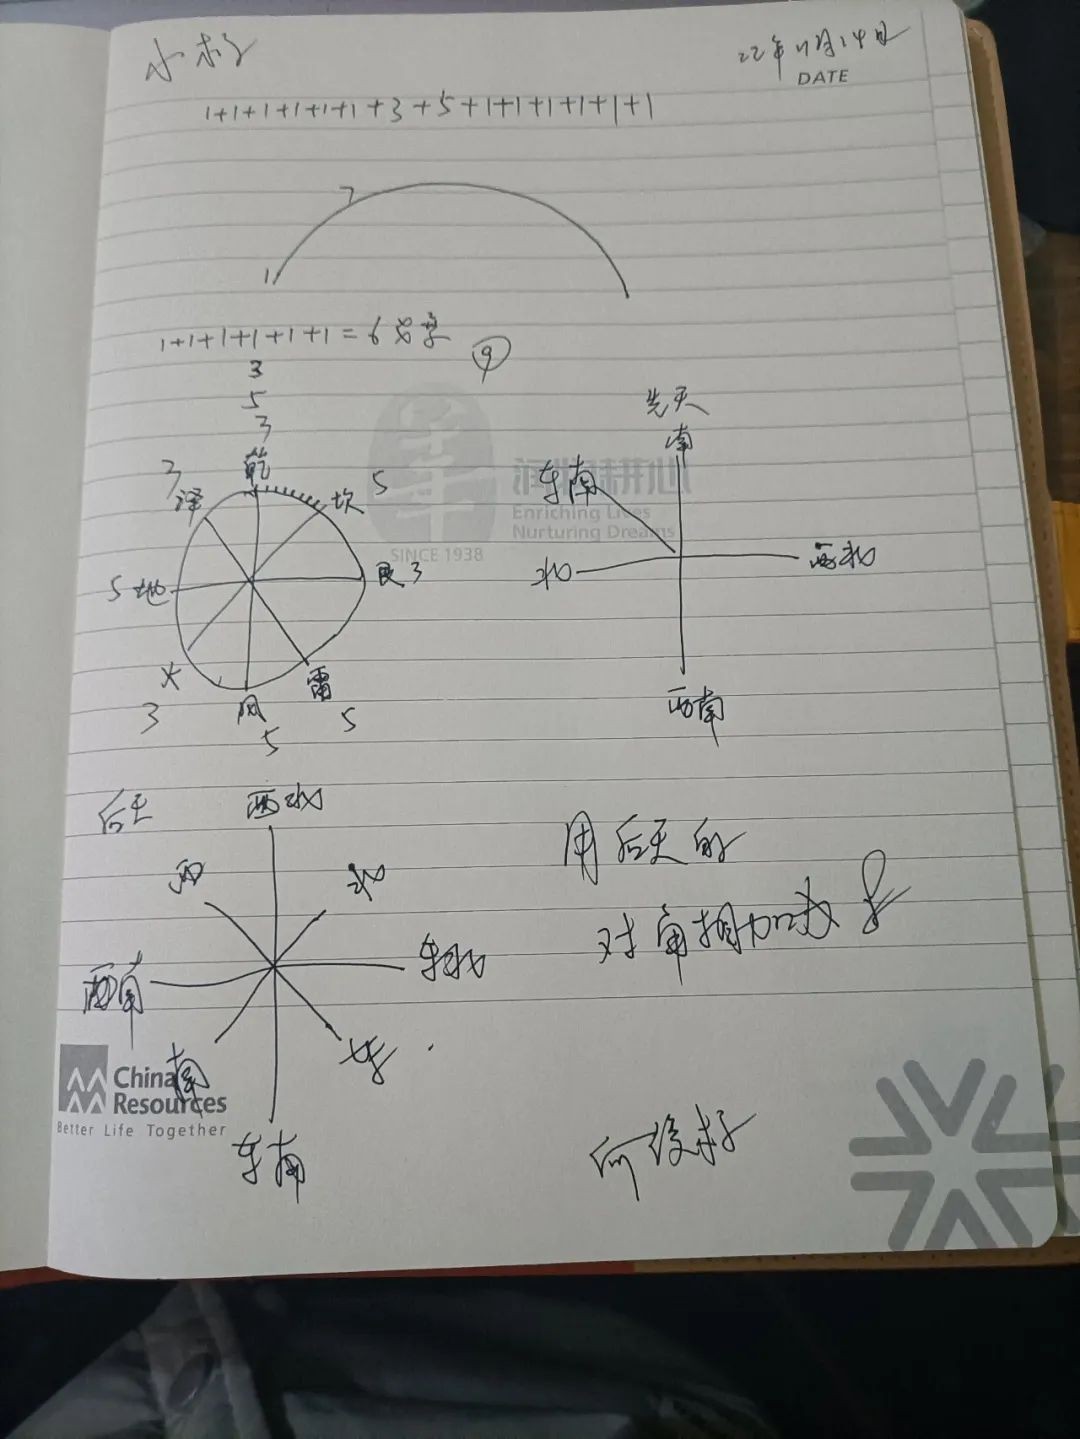 22年11月14日
DATE
1+1+1+1+1+1+3+5+1+1+1+1+1+1
7
1
1+1+1+1+1+1=6
9
3
5
3
乾
3
泽
坎
5
5
地
艮
3
火
雷
3
风
5
5
先天
南
东南
北
西北
西南
SINCE 1938
Enriching Lives
Nurturing Dreams
后天
西北
西
北
西南
东北
南
东
东南
用后天的
对角相加
China
Resources
Better Life Together